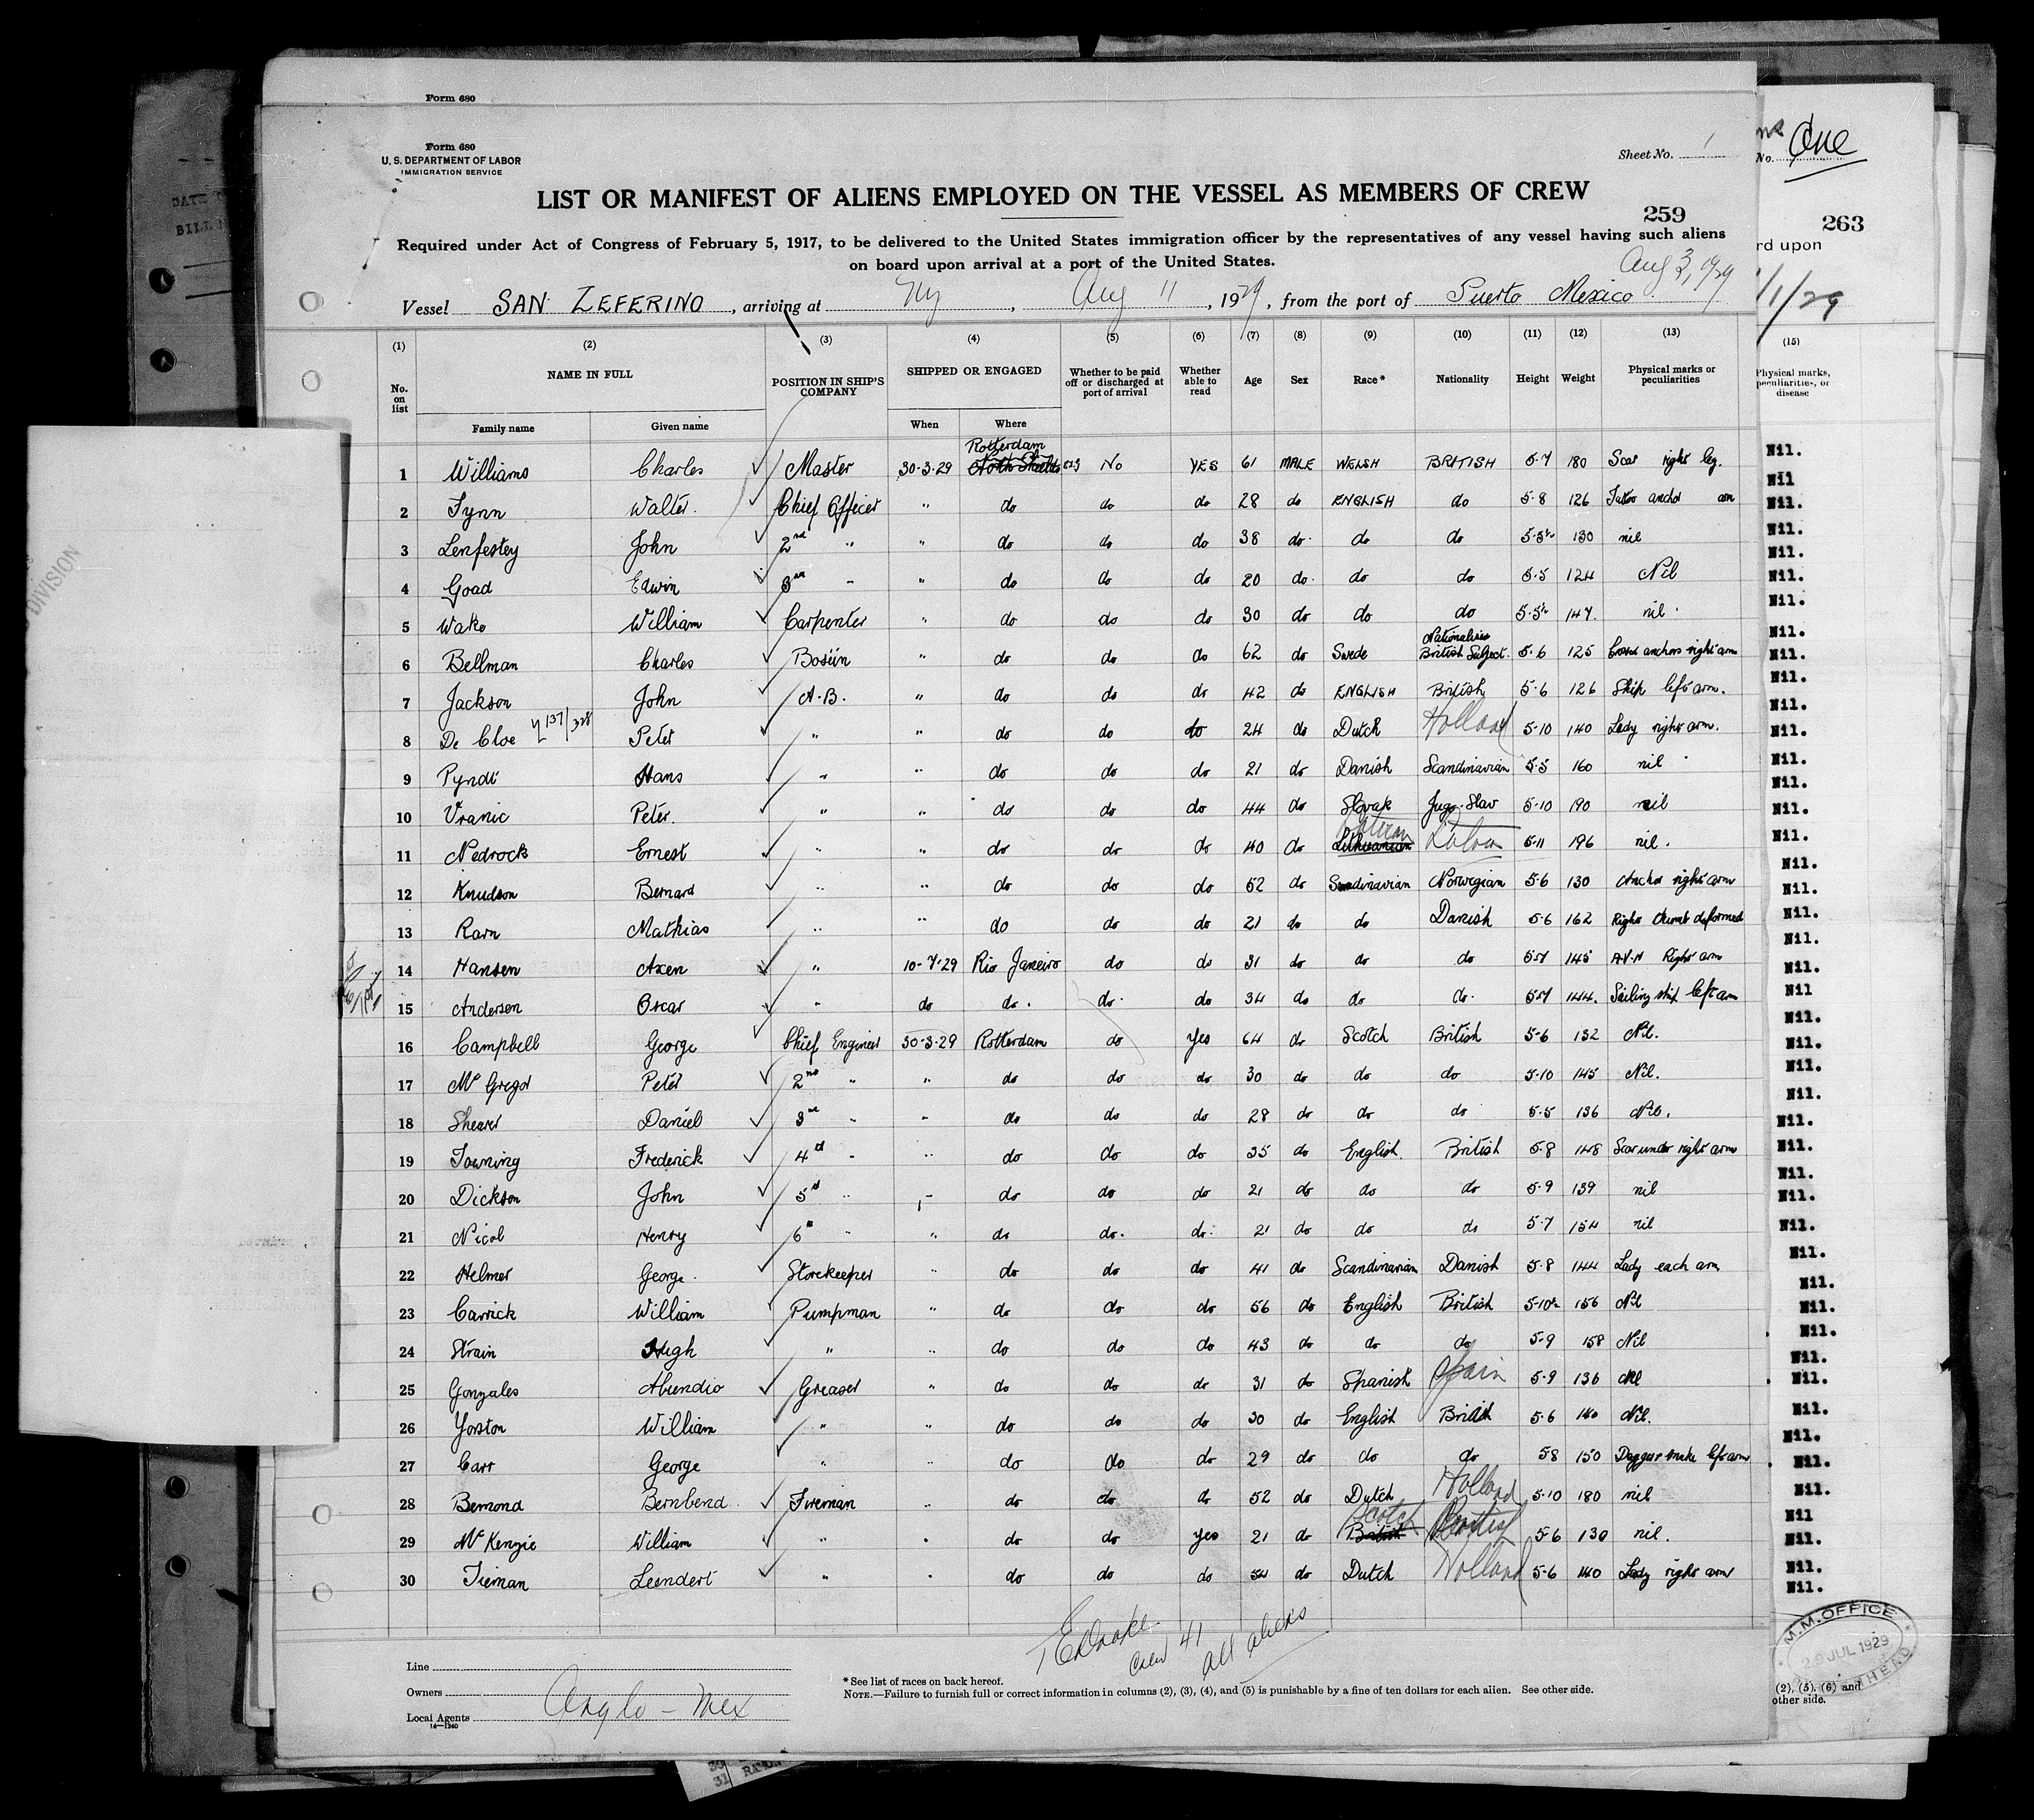 Form 680
Form 680
U. S. DEPARTMENT OF LABOR
IMMIGRATION SERVICE
Sheet No. 1
No. One
LIST OR MANIFEST OF ALIENS EMPLOYED ON THE VESSEL AS MEMBERS OF CREW
259
263
Required under Act of Congress of February 5, 1917, to be delivered to the United States immigration officer by the representatives of any vessel having such aliens
on board upon arrival at a port of the United States.
rd upon
Aug 3, 1929
Vessel SAN ZEFERINO, arriving at Ny, Aug 11, 1929, from the port of Puerto Mexico
/1/29
(1) (2) (3) (4) (5) (6) (7) (8) (9) (10) (11) (12) (13) (15)
No. on list NAME IN FULL POSITION IN SHIP'S COMPANY SHIPPED OR ENGAGED Whether to be paid off or discharged at port of arrival Whether able to read Age Sex Race* Nationality Height Weight Physical marks or peculiarities Physical marks, peculiarities, or disease
Family name Given name When Where
Rotterdam
1 Williams Charles Master 30-3-29 North Shields No YES 61 MALE WELSH BRITISH 5-7 180 Scar right leg. Nil.
2 Fynn Walter. Chief Officer " do do do 28 do ENGLISH do 5-8 126 Tattoo anchor arm Nil.
3 Lenfestey John 2nd " " do do do 38 do do do 5-5½ 130 nil Nil.
4 Goad Edwin 3rd " " do do do 20 do do do 5-5 124 Nil Nil.
5 Wake William Carpenter " do do do 30 do do do 5-5½ 147. nil Nil.
6 Bellman Charles Bosun " do do do 62 do Swede British Subject. 5-6 125 Crossed anchors right arm Nil.
7 Jackson John A.B. " do do do 42 do ENGLISH British 5-6 126 Ship left arm. Nil.
8 De Cloe Peter " " do do do 24 do Dutch Holland 5-10 140 Lady right arm. Nil.
9 Pyndt Hans " " do do do 21 do Danish Scandinavian 5-5 160 nil Nil.
10 Vranic Peter. " " do do do 44 do Slovak Jugo-Slav 5-10 190 nil Nil.
11 Nedrock Ernest " " do do do 40 do Lithuanian 5-11 196 nil. Nil.
12 Knudson Bernard " " do do do 52 do Scandinavian Norwegian 5-6 130 Anchor right arm Nil.
13 Rarn Mathias " " do do do 21 do do Danish 5-6 162 Right thumb deformed Nil.
14 Hansen Axen " 10-7-29 Rio Janeiro do do 31 do do do 5-7 145 A.V.H Right arm Nil.
15 Anderson Oscar " do do. do. do 34 do do do. 5-7 144. Sailing ship left arm Nil
16 Campbell George Chief Engineer 30-3-29 Rotterdam do yes 64 do Scotch British 5-6 132 Nil. Nil.
17 Mc Gregor Peter 2nd " " do do do 30 do do do 5-10 145 Nil. Nil.
18 Shearer Daniel 3rd " " do do do 28 do do do 5-5 136 Nil. Nil.
19 Towning Frederick 4th " " do do do 35 do English. British 5-8 148 Scar under right arm Nil.
20 Dickson John 5th " " do do do 21 do do do 5-9 139 nil Nil.
21 Nicol Henry 6th " " do do. do. 21 do do do 5-7 154 nil Nil.
22 Helmer George. Storekeeper " do do do 41 do Scandinavian Danish 5-8 144 Lady each arm Nil.
23 Carrick William Pumpman " do do do 56 do English British 5-10½ 156 Nil Nil.
24 Strain Hugh " " do do do 43 do do do 5-9 158 Nil Nil.
25 Gonzales Abundio Greaser " do do do 31 do Spanish Spain 5-9 136 Nil Nil.
26 Yorston William " " do do do 30 do English British 5-6 140 Nil. Nil.
27 Carr George " " do do do 29 do do do 5-8 150 Dagger snake left arm Nil.
28 Bemond Bernbend Fireman " do do do 52 do Dutch Holland 5-10 180 nil Nil.
29 Mc Kenzie William " " do do yes 21 do Scotch British 5-6 130 nil. Nil.
30 Tieman Leendert " " do do do 54 do Dutch Holland 5-6 140 Lady right arm Nil.
Crew 41
all aliens
Line
Owners
Local Agents Anglo-Mex
14—1240
*See list of races on back hereof.
NOTE.—Failure to furnish full or correct information in columns (2), (3), (4), and (5) is punishable by a fine of ten dollars for each alien. See other side.
(2), (5), (6) and
other side.
M.M.OFFICE
JUL 1929
DIVISION